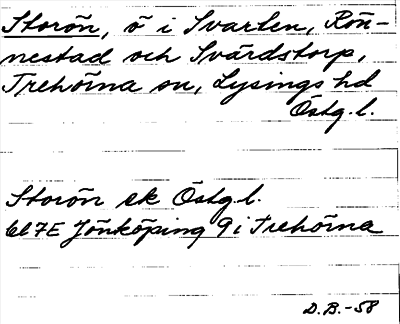 Storön, ö i Svarten, Rön-
nestad och Svärdstorp,
Trehörna sn, Lysings hd
Östg.l.
Storön ek Östg.l.
bl 7E Jönköping 9 i Trehörna
D.B.-58